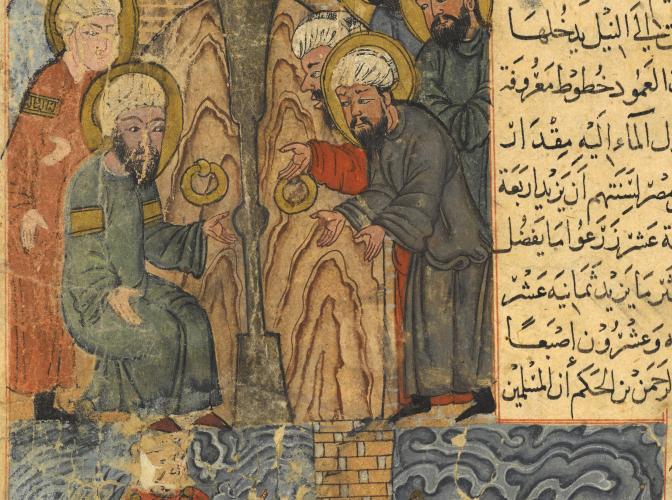 إلى النيل يدخلها
العمود خطوط معروفة
الماء إليه مقدار
لسنتهم أن يزيد اربعة
عشر زرعوا ما يفضل
ما يزيد ثمانيه عشر
وعشرون اصبعا
الرحمن بن الحكم أن المسلمين